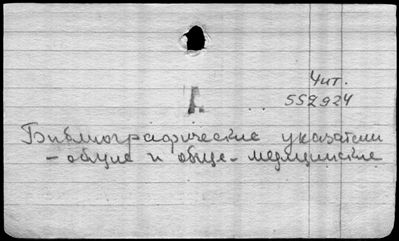 Чит.
I.
552924
Библиографические указатели
- общие и обще-медицинские